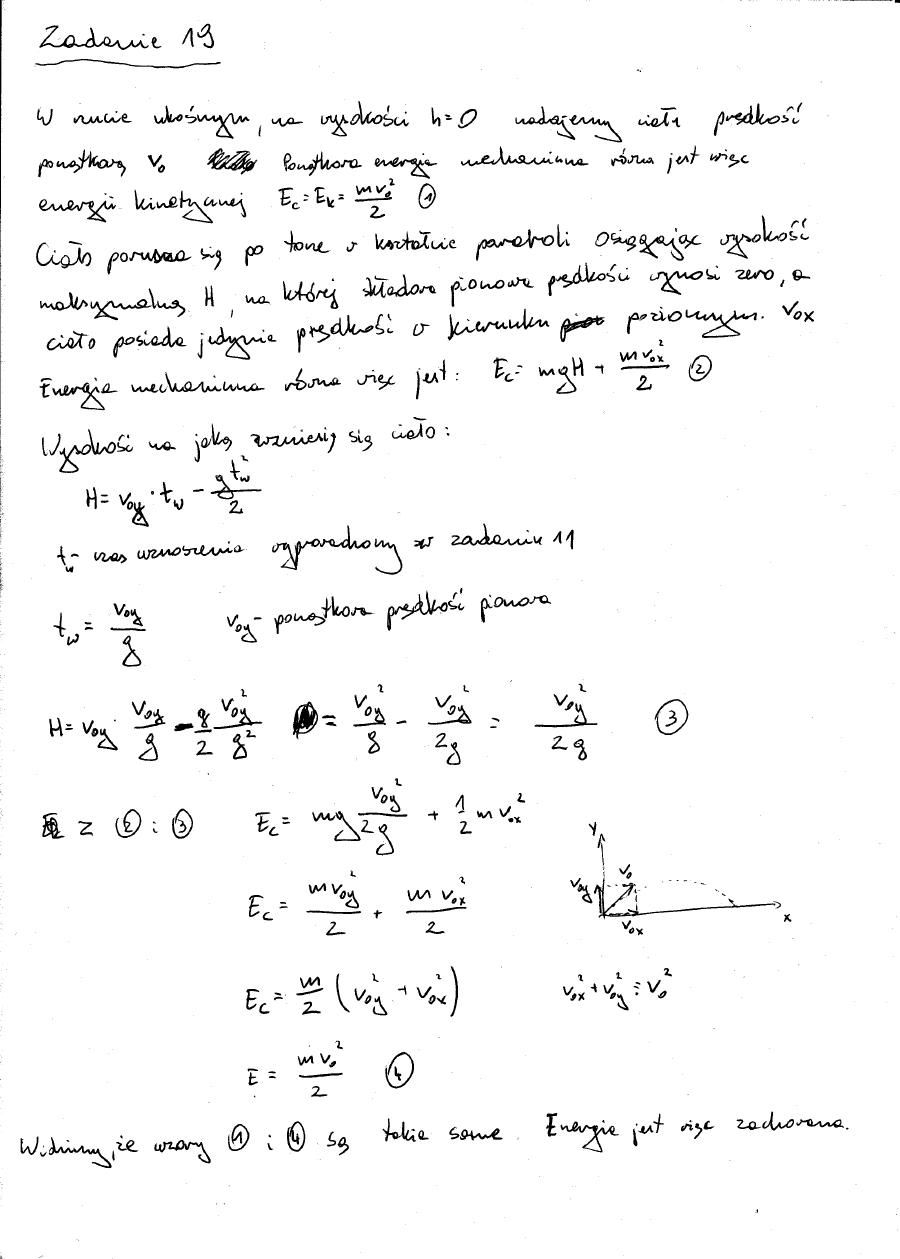 Zadanie 19
W rzucie ukośnym, na wysokości h=0 nadajemy ciału prędkość
początkową v₀ Początkowa energia mechaniczna równa jest więc
energii kinetycznej E_c = E_k = mv₀²/2 ①
Ciało porusza się po torze w kształcie paraboli osiągając wysokość
maksymalną H, na której składowa pionowa prędkości wynosi zero, a
ciało posiada jedynie prędkość w kierunku poziomym. v₀ₓ
Energia mechaniczna równa więc jest: E_c = mgH + mv₀ₓ²/2 ②
Wysokość na jaką wzniesie się ciało:
H = v_{0y} · t_w - gt_w²/2
t_w - czas wznoszenia wyprowadzony w zadaniu 11
t_w = v_{0y}/g v_{0y} - początkowa prędkość pionowa
H = v_{0y} · v_{0y}/g - g/2 v_{0y}²/g² = v_{0y}²/g - v_{0y}²/2g = v_{0y}²/2g ③
z ② i ③ E_c = mg v_{0y}²/2g + 1/2 mv₀ₓ²
y
v_{0y} v₀
v₀ₓ x
E_c = mv_{0y}²/2 + mv₀ₓ²/2
E_c = m/2 (v_{0y}² + v₀ₓ²) v₀ₓ² + v_{0y}² = v₀²
E = mv₀²/2 ④
Widzimy, że wzory ① i ④ są takie same. Energia jest więc zachowana.